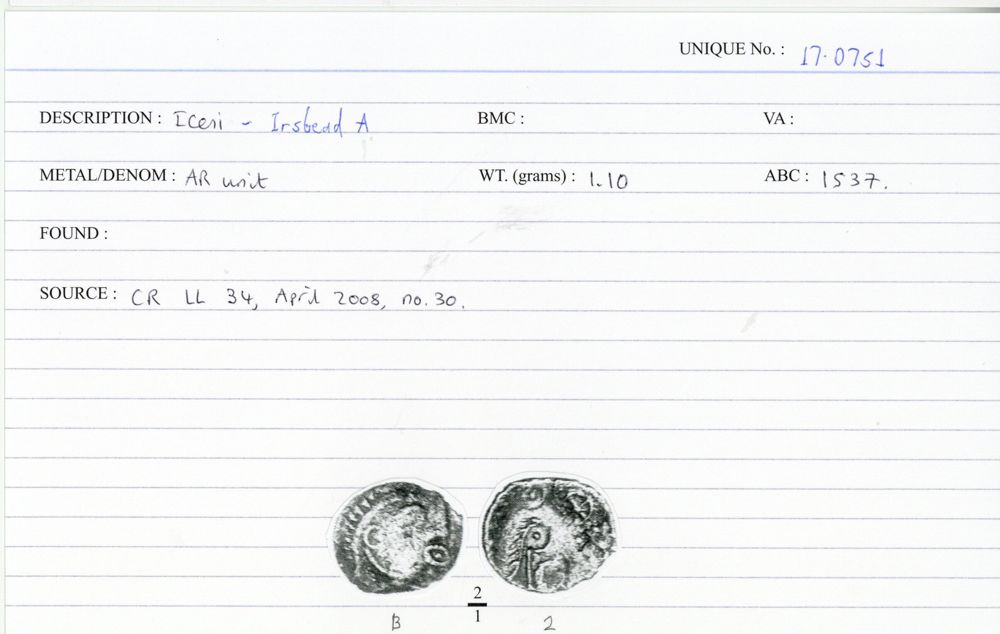 UNIQUE No. : 17.0751
DESCRIPTION : Iceni - Irstead A BMC : VA :
METAL/DENOM : AR unit WT. (grams) : 1.10 ABC : 1537.
FOUND :
SOURCE : CR LL 34, April 2008, no. 30.
2
1
B 2